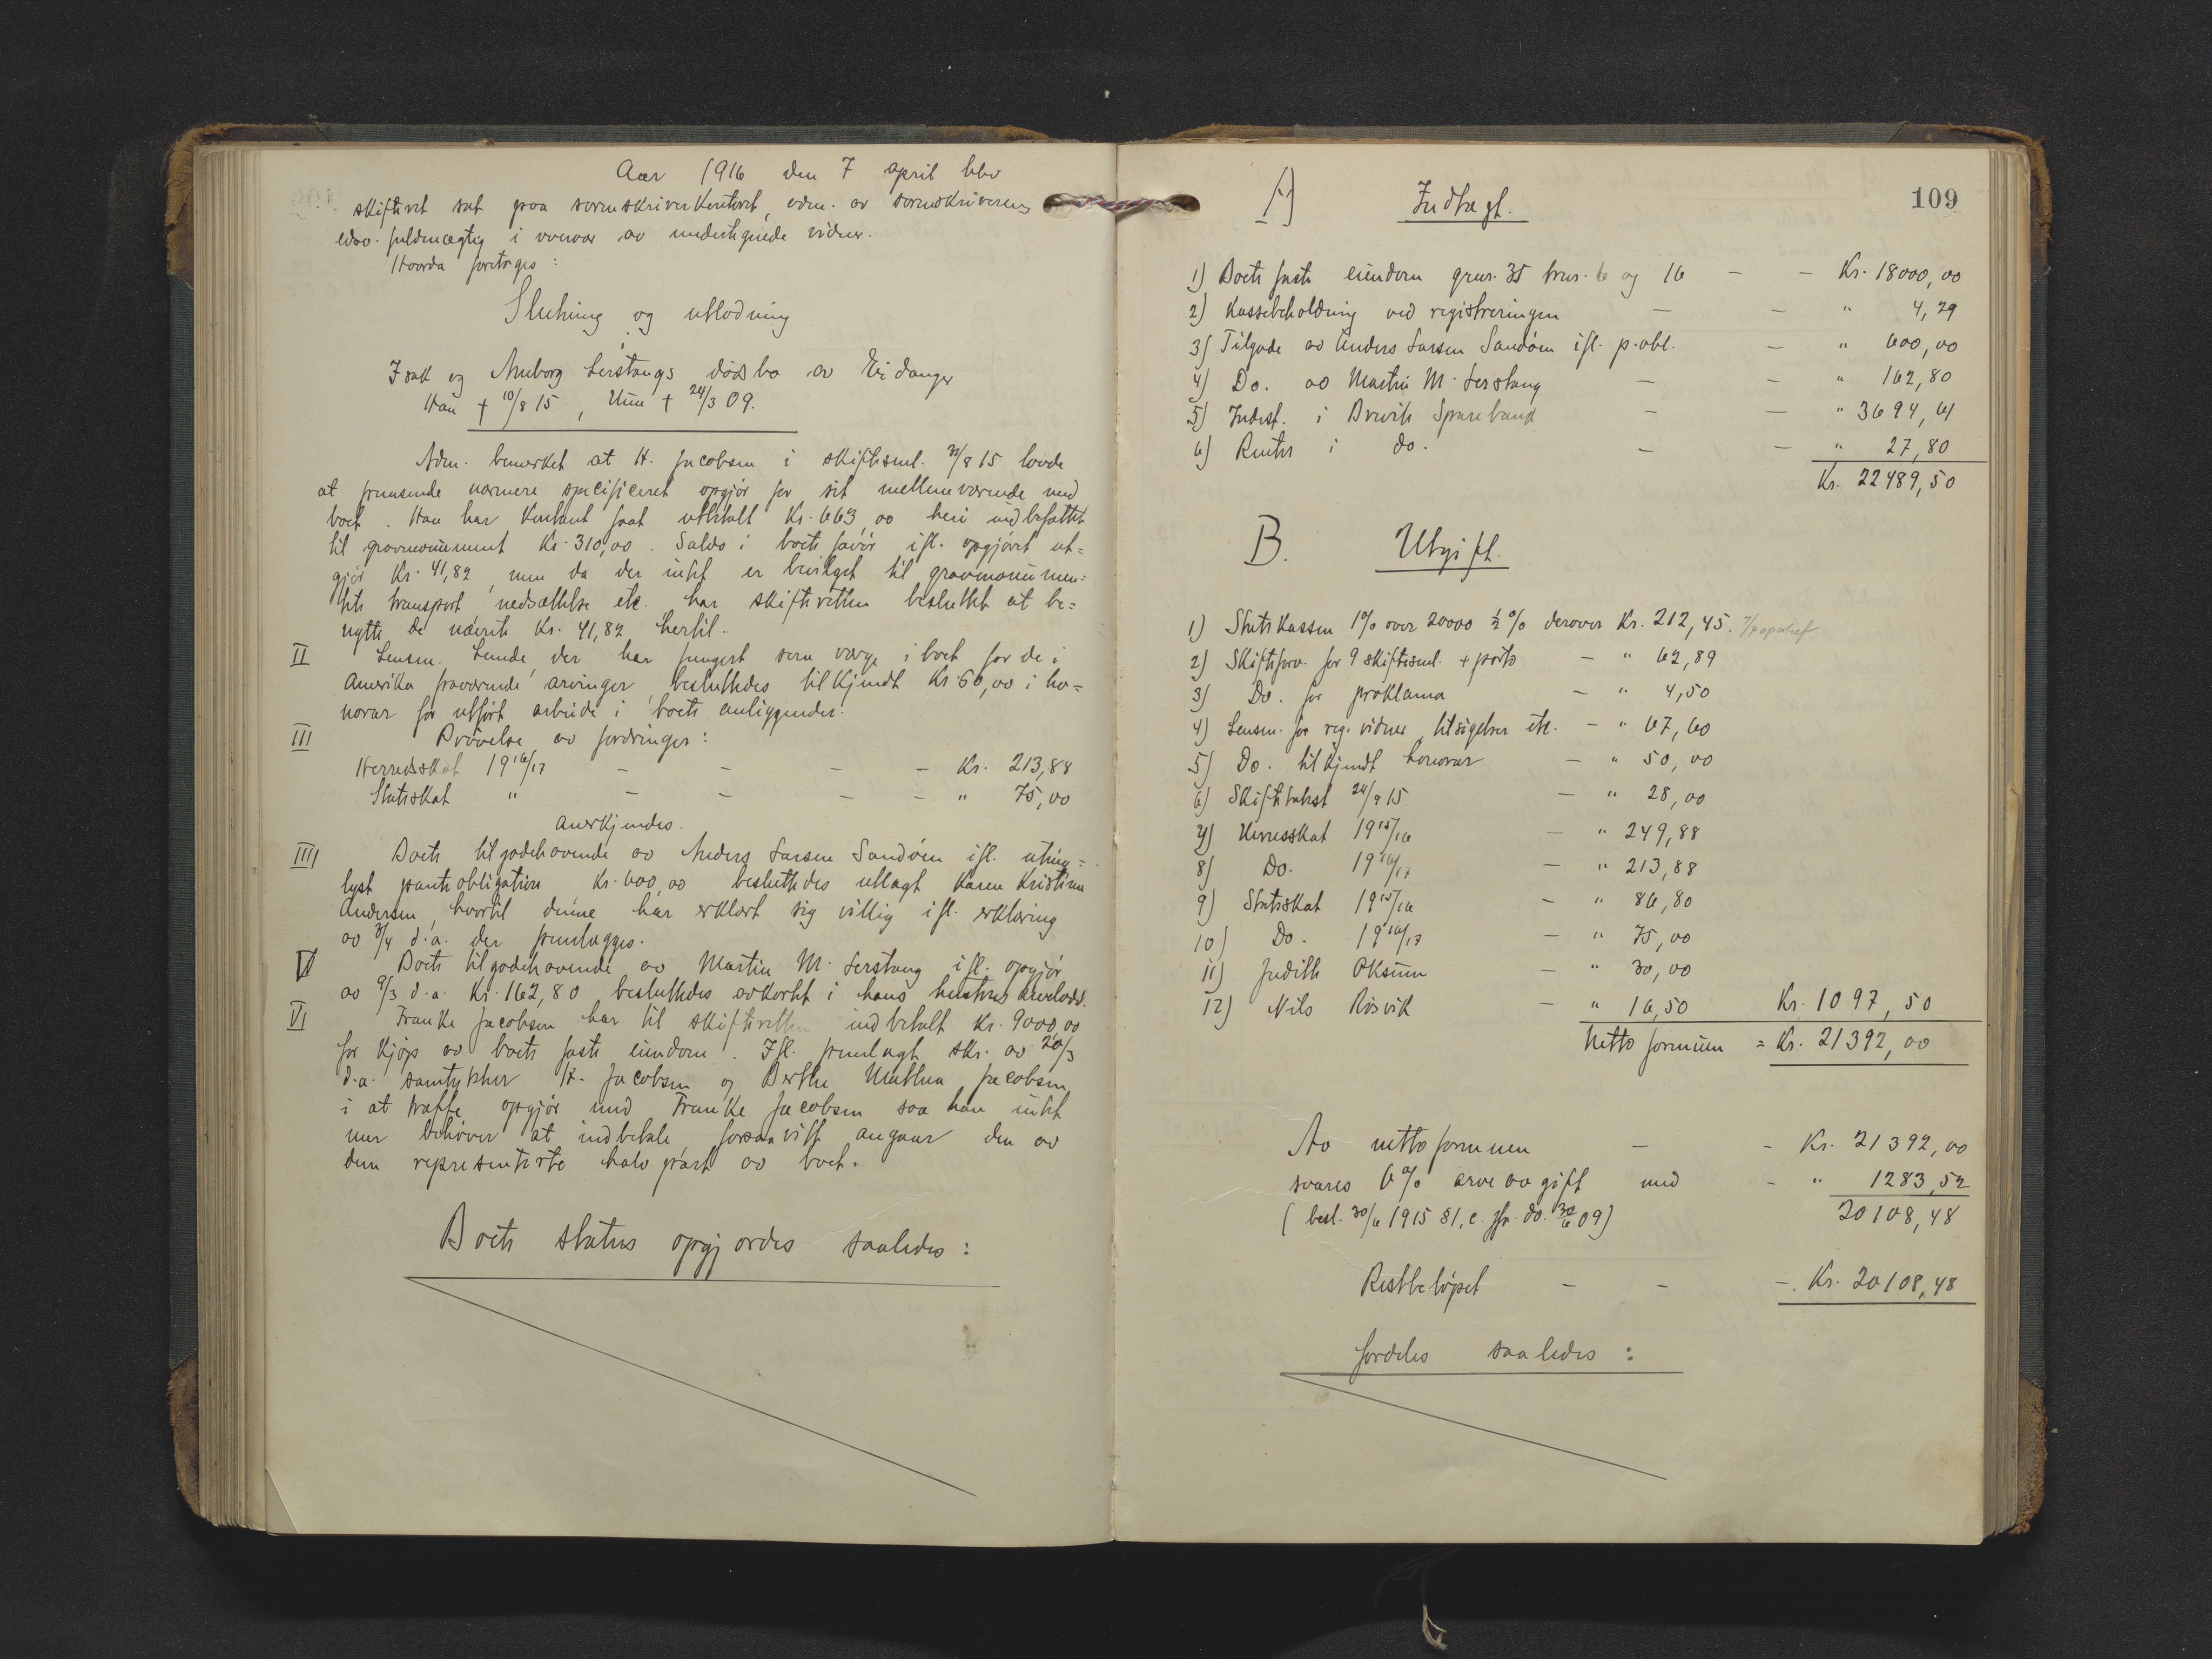 Aar 1916 den 7 april blev
skifteret sat paa sorenskriverkontoret, adm. av sorenskriverens
edsv. fuldmægtig i overvær av undertegnede vidner.
Hvorda foretoges:
Slutning og utlodning
i
Isak og Anborg Lerstangs dødsbo av Eidanger
Han † 10/8 15, Hun † 24/3 09.
Adm. bemerket at H. Jacobsen i skiftesml. 31/8 15 lovde
at fremsende nærmere specificeret opgjør for sit mellemværende med
boet. Han har kontant faat utbetalt Kr. 663,00 heri indbefattet
til gravmonument Kr. 310,00. Saldo i boets favør ifl. opgjøret ut=
gjør Kr. 41,82, men da der intet er bevilget til gravmonumen=
tets transport, nedsættelse etc. har skifteretten besluttet at be=
nytte de nævnte Kr. 41,82 hertil.
II Lensm. Lunde, der har fungert som verge i boet for de i
Amerika fraværende arvinger, besluttedes tilkjendt Kr. 50,00 i ho=
norar for utført arbeide i boets anliggender.
III Prøvelse av fordringer:
Herredsskat 1916/17 - - - - Kr. 213,88
Statsskat " - - - - " 75,00
anerkjendes.
IIII Boets tilgodehavende av Anders Larsen Sandøen ifl. uting=
lyst panteobligation Kr. 600,00 besluttedes utlagt Karen Kristine
Andersen, hvortil denne har erklært sig villig ifl. erklæring
av 3/4 d.a. der fremlægges.
V Boets tilgodehavende av Martin M. Lerstang ifl. opgjør
av 9/3 d.a. Kr. 162,80 besluttedes avkortet i hans hustrus arvelodd.
VI Franke Jacobsen har til skifteretten indbetalt Kr. 9000,00
for kjøp av boets faste eiendom. Ifl. fremlagt skr. av 20/3
d.a. samtykker H. Jacobsen og Berthe Mathea Jacobsen
i at træffe opgjør med Franke Jacobsen saa han intet
mer behøver at indbetale forsaavitt angaar den av
dem representerte halvpart av boet.
Boets status opgjordes saaledes:
109
A) Indtægt.
1) Boets faste eiendom gnr. 35 bnr. 6 og 16 - - Kr. 18000,00
2) Kassebeholdning ved registreringen - - " 4,29
3) Tilgode av Anders Larsen Sandøen ifl. p.obl. - " 600,00
4) Do. av Martin M. Lerstang - - " 162,80
5) Indest. i Brevik Sparebank - - " 3694,61
6) Renter i do. - - " 27,80
Kr. 22489,50
B. Utgift.
1) Statskassen 1% over 20000 ½% derover Kr. 212,45.
2) Skifteforv. for 9 skiftesml. + porto - " 62,89
3) Do. for proklama - " 4,50
4) Lensm. for reg. vidner, tilsigelser etc. - " 67,60
5) Do. tilkjendt honorar - " 50,00
6) Skiftetakst 24/9 15 - " 28,00
7) Herredsskat 1915/16 - " 249,88
8) Do. 1916/17 - " 213,88
9) Statsskat 1915/16 - " 86,80
10) Do. 1916/17 - " 75,00
11) Judith Oksum - " 30,00
12) Nils Røsvik - " 16,50 Kr. 1097,50
Netto formuen = Kr. 21392,00
Av nettoformuen - - Kr. 21392,00
svares 6% arveavgift med - " 1283,52
(besl. 30/6 1915 §1, c. jfr. do. 30/6 09) 20108,48
Restbeløpet - - -. Kr. 20108,48
fordeles saaledes: